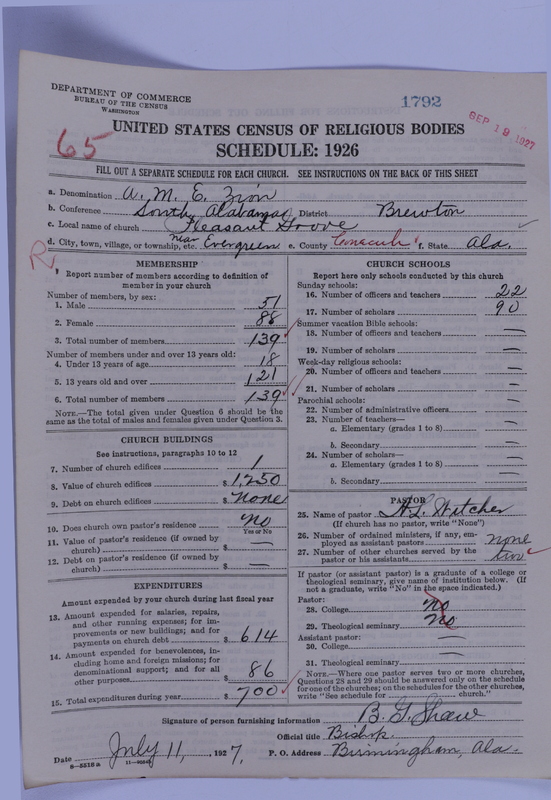 DEPARTMENT OF COMMERCE
BUREAU OF THE CENSUS
WASHINGTON
1792
SEP 19 1927
65
UNITED STATES CENSUS OF RELIGIOUS BODIES
SCHEDULE: 1926
FILL OUT A SEPARATE SCHEDULE FOR EACH CHURCH. SEE INSTRUCTIONS ON THE BACK OF THIS SHEET
a. Denomination A. M. E. Zion
b. Conference South Alabama District Brewton
c. Local name of church Pleasant Grove
d. City, town, village, or township, etc. near Evergreen e. County Conecuh f. State Ala.
R
MEMBERSHIP
Report number of members according to definition of member in your church
Number of members, by sex:
1. Male 51
2. Female 88
3. Total number of members 139
Number of members under and over 13 years old:
4. Under 13 years of age 18
5. 13 years old and over 121
6. Total number of members 139
NOTE.—The total given under Question 6 should be the
same as the total of males and females given under Question 3.
CHURCH BUILDINGS
See instructions, paragraphs 10 to 12
7. Number of church edifices 1
8. Value of church edifices $ 1,250
9. Debt on church edifices $ None
10. Does church own pastor's residence No
Yes or No
11. Value of pastor's residence (if owned by
church) $ —
12. Debt on pastor's residence (if owned by
church) $ —
EXPENDITURES
Amount expended by your church during last fiscal year
13. Amount expended for salaries, repairs,
and other running expenses; for im-
provements or new buildings; and for
payments on church debt $ 614
14. Amount expended for benevolences, in-
cluding home and foreign missions; for
denominational support; and for all
other purposes $ 86
15. Total expenditures during year $ 700
CHURCH SCHOOLS
Report here only schools conducted by this church
Sunday schools:
16. Number of officers and teachers 22
17. Number of scholars 90
Summer vacation Bible schools:
18. Number of officers and teachers —
19. Number of scholars —
Week-day religious schools:
20. Number of officers and teachers —
21. Number of scholars —
Parochial schools:
22. Number of administrative officers —
23. Number of teachers—
a. Elementary (grades 1 to 8) —
b. Secondary —
24. Number of scholars—
a. Elementary (grades 1 to 8) —
b. Secondary —
PASTOR
25. Name of pastor A. L. Witcher
(If church has no pastor, write "None")
26. Number of ordained ministers, if any, em-
ployed as assistant pastors none
27. Number of other churches served by the
pastor or his assistants two
If pastor (or assistant pastor) is a graduate of a college or
theological seminary, give name of institution below. (If
not a graduate, write "No" in the space indicated.)
Pastor:
28. College No
29. Theological seminary No
Assistant pastor:
30. College —
31. Theological seminary —
NOTE.—Where one pastor serves two or more churches,
Questions 28 and 29 should be answered only on the schedule
for one of the churches; on the schedule for the other churches,
write "See schedule for church."
Signature of person furnishing information B. G. Shaw
Official title Bishop.
Date July 11, 1927. P. O. Address Birmingham, Ala.
8—5518 a